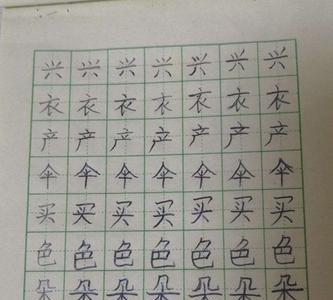 兴 兴 兴 兴 兴 兴 兴
衣 衣 衣 衣 衣 衣 衣
产 产 产 产 产 产 产
伞 伞 伞 伞 伞 伞 伞
买 买 买 买 买 买 买
色 色 色 色 色 色 色
朵 朵 朵 朵 朵 朵 朵